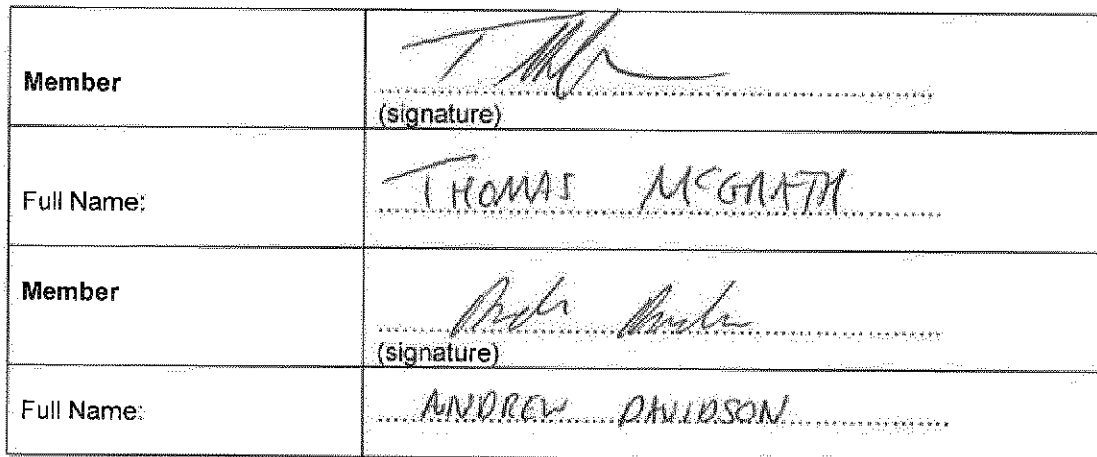 Member
(signature)
Full Name: THOMAS MCGRATH
Member
(signature)
Full Name: ANDREW DAVIDSON